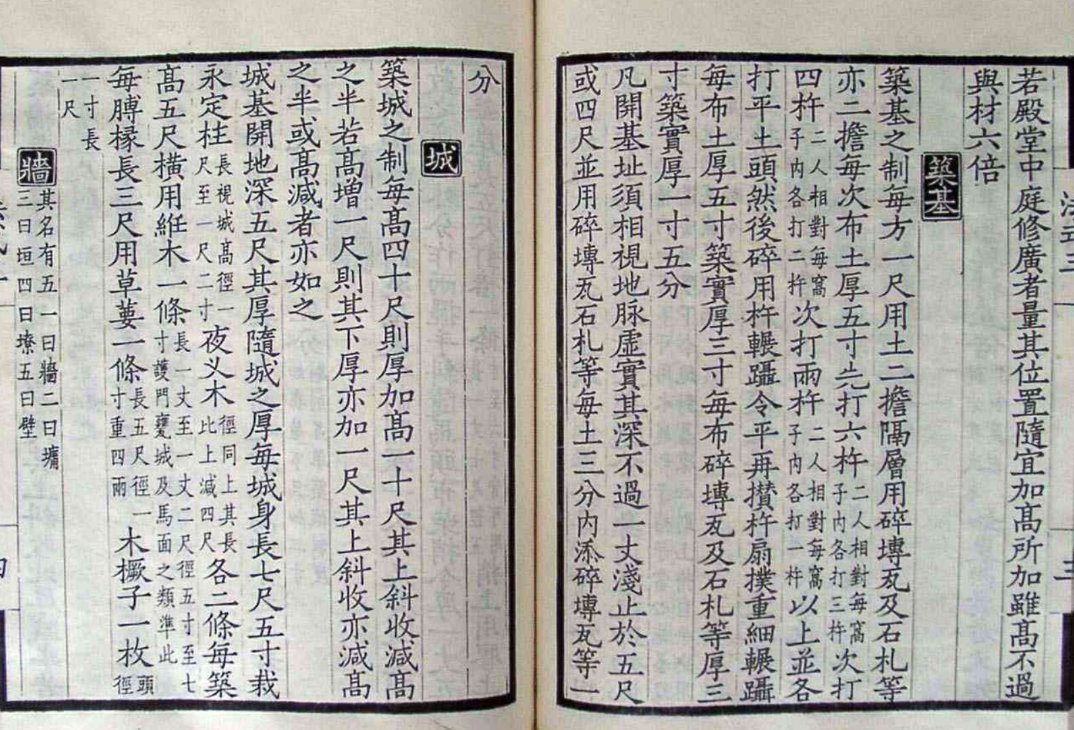 若殿堂中庭修廣者量其位置隨宜加高所加雖高不過
與材六倍
築基
築基之制每方一尺用土二擔隔層用碎塼瓦及石札等
亦二擔每次布土厚五寸先打六杵二人相對每窩子內各打三杵次打
四杵二人相對每窩子內各打二杵次打兩杵二人相對每窩子內各打一杵以上並各
打平土頭然後碎用杵輾躡令平再攢杵扇撲重細輾躡
每布土厚五寸築實厚三寸每布碎塼瓦及石札等厚三
寸築實厚一寸五分
凡開基址須相視地脉虛實其深不過一丈淺止於五尺
或四尺並用碎塼瓦石札等每土三分內添碎塼瓦等一
分
城
築城之制每高四十尺則厚加高一十尺其上斜收減高
之半若高增一尺則其下厚亦加一尺其上斜收亦減高
之半或高減者亦如之
城基開地深五尺其厚隨城之厚每城身長七尺五寸栽
永定柱長視城高徑一尺至一尺二寸夜义木徑同上其長比上減四尺各二條每築
高五尺橫用絍木一條長一丈至一丈二尺徑五寸至七寸護門甕城及馬面之類準此
每膊椽長三尺用草葽一條長五尺徑一寸重四兩木橛子一枚頭徑
一寸長一尺
牆其名有五一曰牆二曰墉三曰垣四曰㙩五曰壁